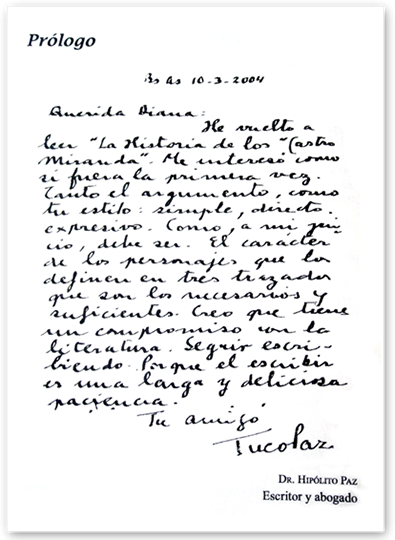 Prólogo
Bs As 10-3-2004
Querida Diana:
He vuelto a
leer "La Historia de los "Castro
Miranda". Me interesó como
si fuera la primera vez.
Tanto el argumento, como
tu estilo: simple, directo.
expresivo. Como, a mi jui-
cio, debe ser. El carácter
de los personajes que los
definen en tres trazados
que son los necesarios y
suficientes. Creo que tiene
un compromiso con la
literatura. Seguir escri-
biendo. Porque el escribir
es una larga y deliciosa
paciencia.
Tu amigo
Tuco Paz
Dr. Hipólito Paz
Escritor y abogado